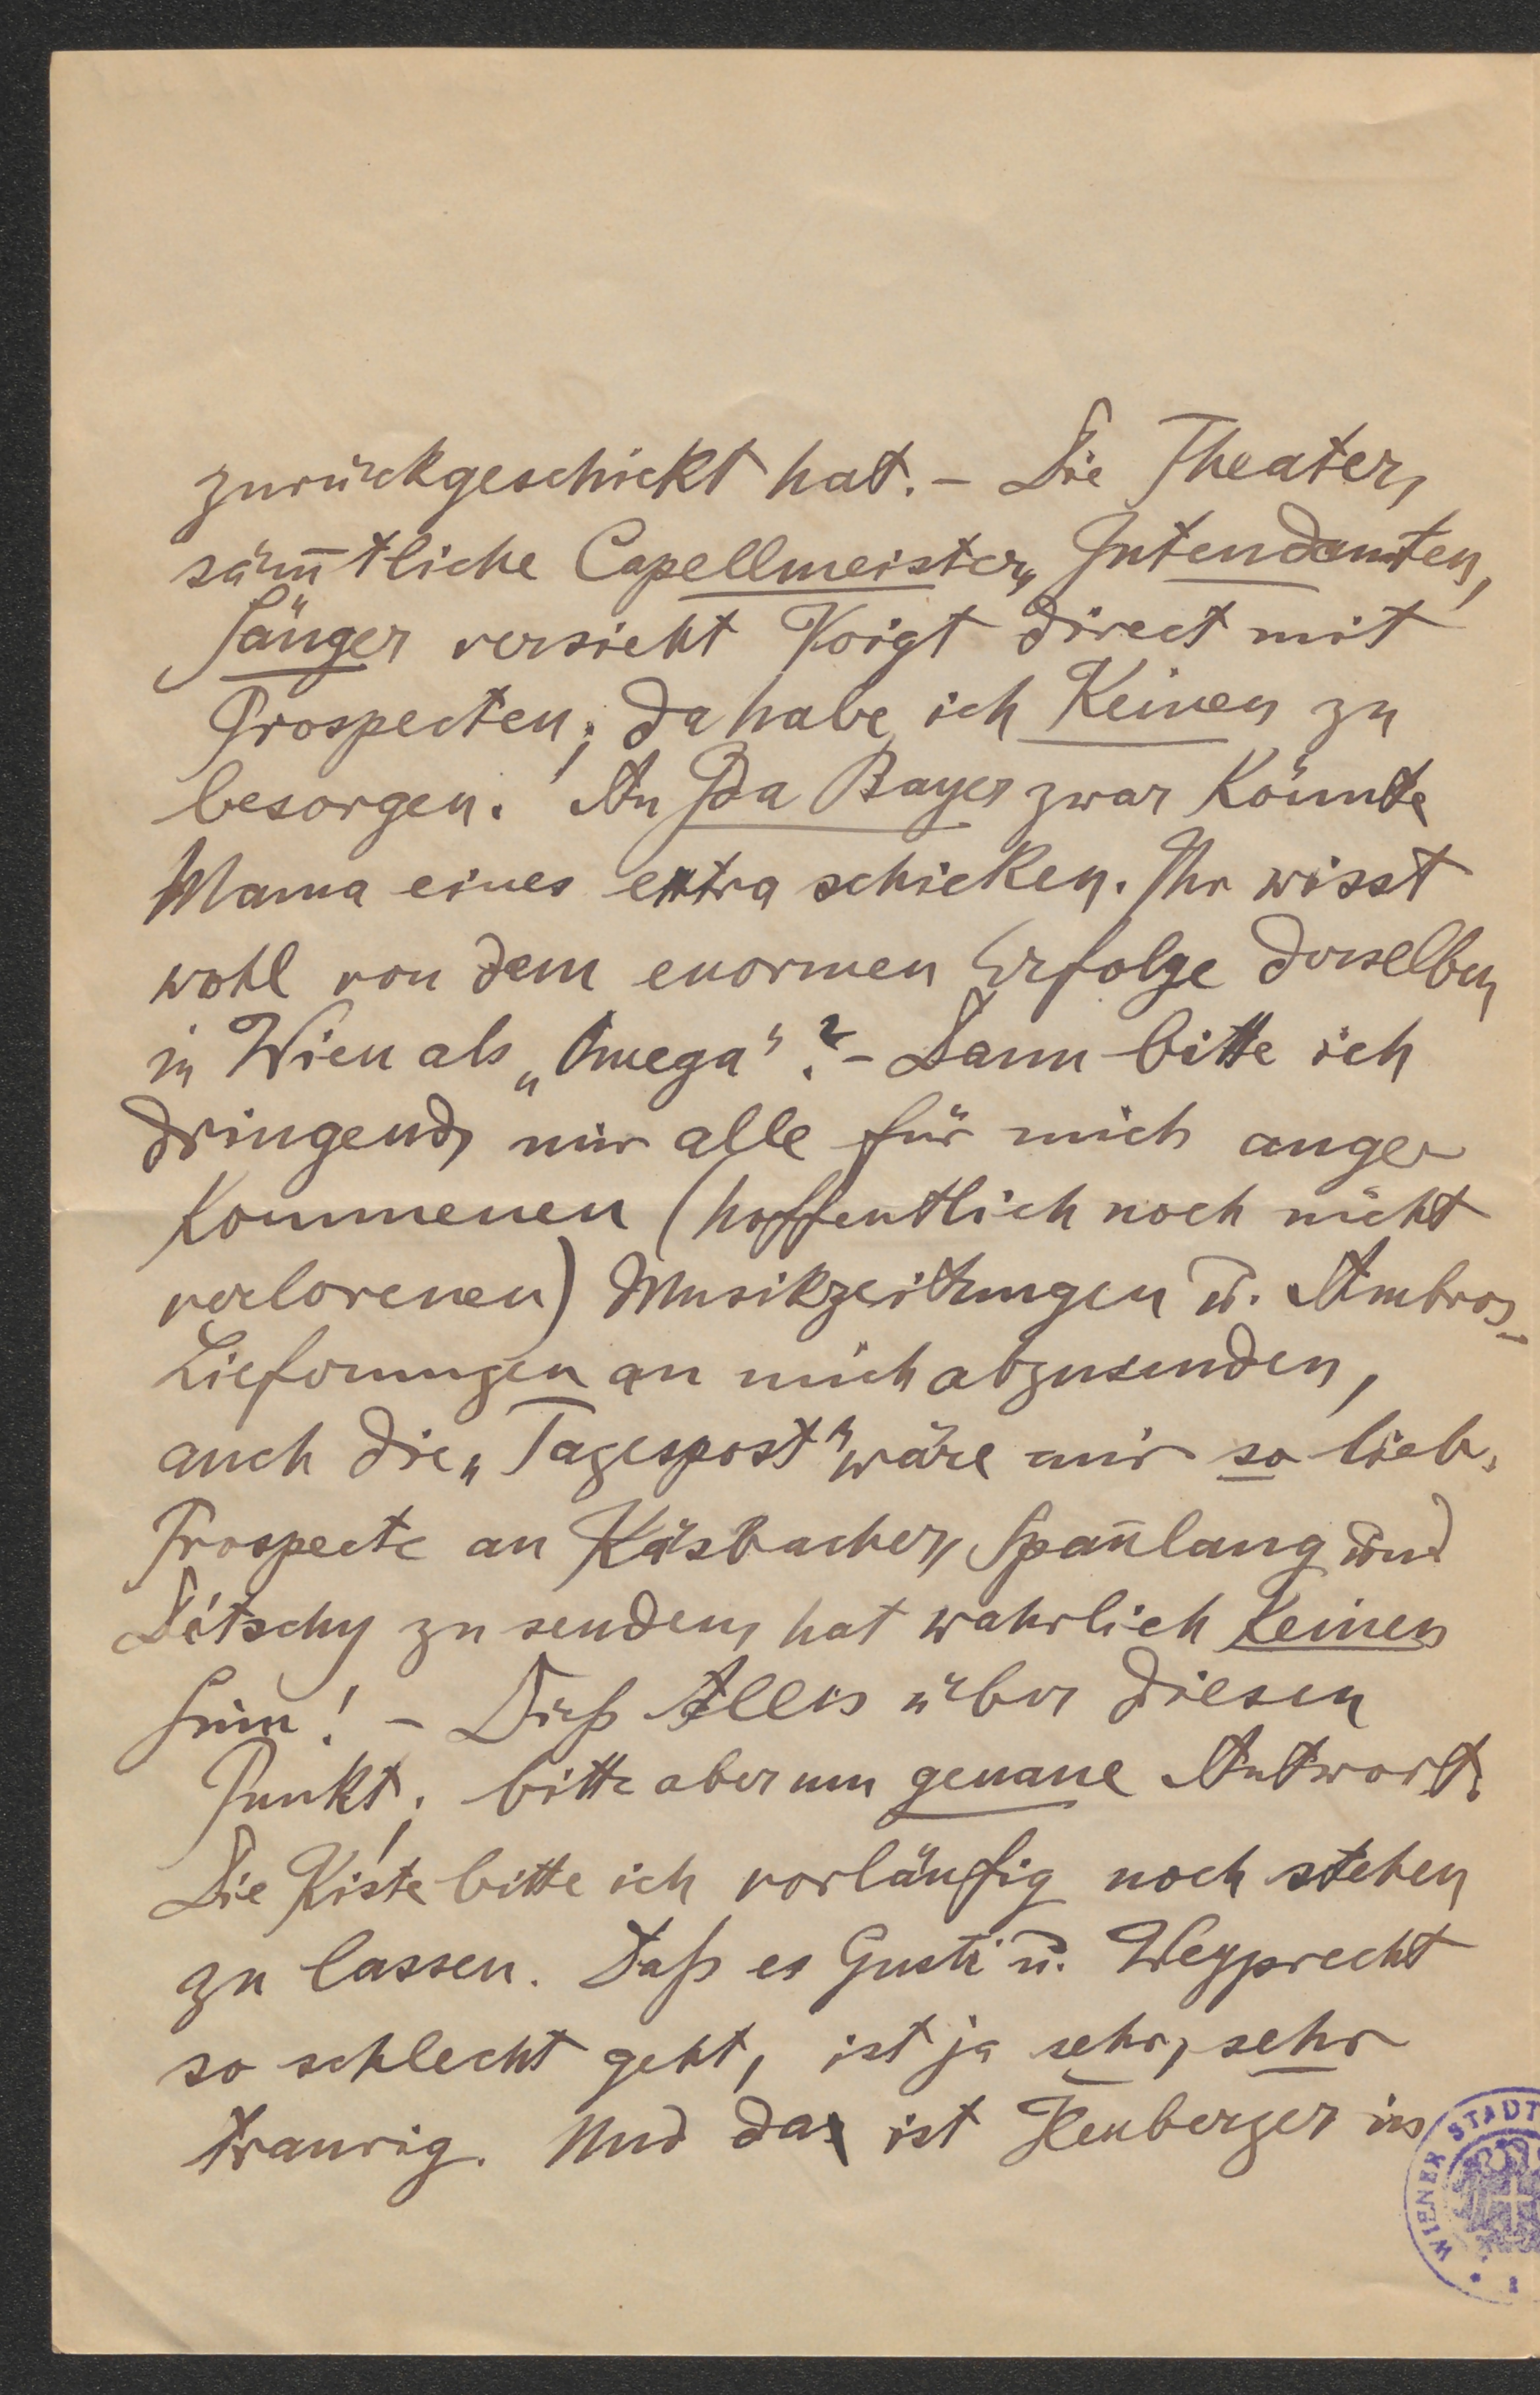 zurückgeschickt hat. – Die Theater,
säm̅tliche Capellmeister, Intendanten,
Sänger versieht Voigt direct mit
Prospecten; da habe ich Keinen zu
besorgen. An Ida Bayer zwar könnte
Mama eines extra schicken. Ihr wisst
wohl von dem enormen Erfolge derselben
in Wien als „Omega“? – Dann bitte ich
dringend, mir alle für mich ange
kommenen (hoffentlich noch nicht
verlorenen) Musikzeitungen u. Ambros-
Lieferungen an mich abzusenden,
auch die „Tagespost“ wäre mir so lieb.
Prospecte an Käsbacher, Span̅lang und
Ditschy zu senden, hat wahrlich keinen
Sinn! – Dieß Alles über diesen
Punkt; bitte aber um genaue Antwort.
Die Kiste bitte ich vorläufig noch stehen
zu lassen. Daß es Gusti u. Weyprecht
so schlecht geht, ist ja sehr, sehr
traurig. Und da ist Heuberger in
WIENER STADT